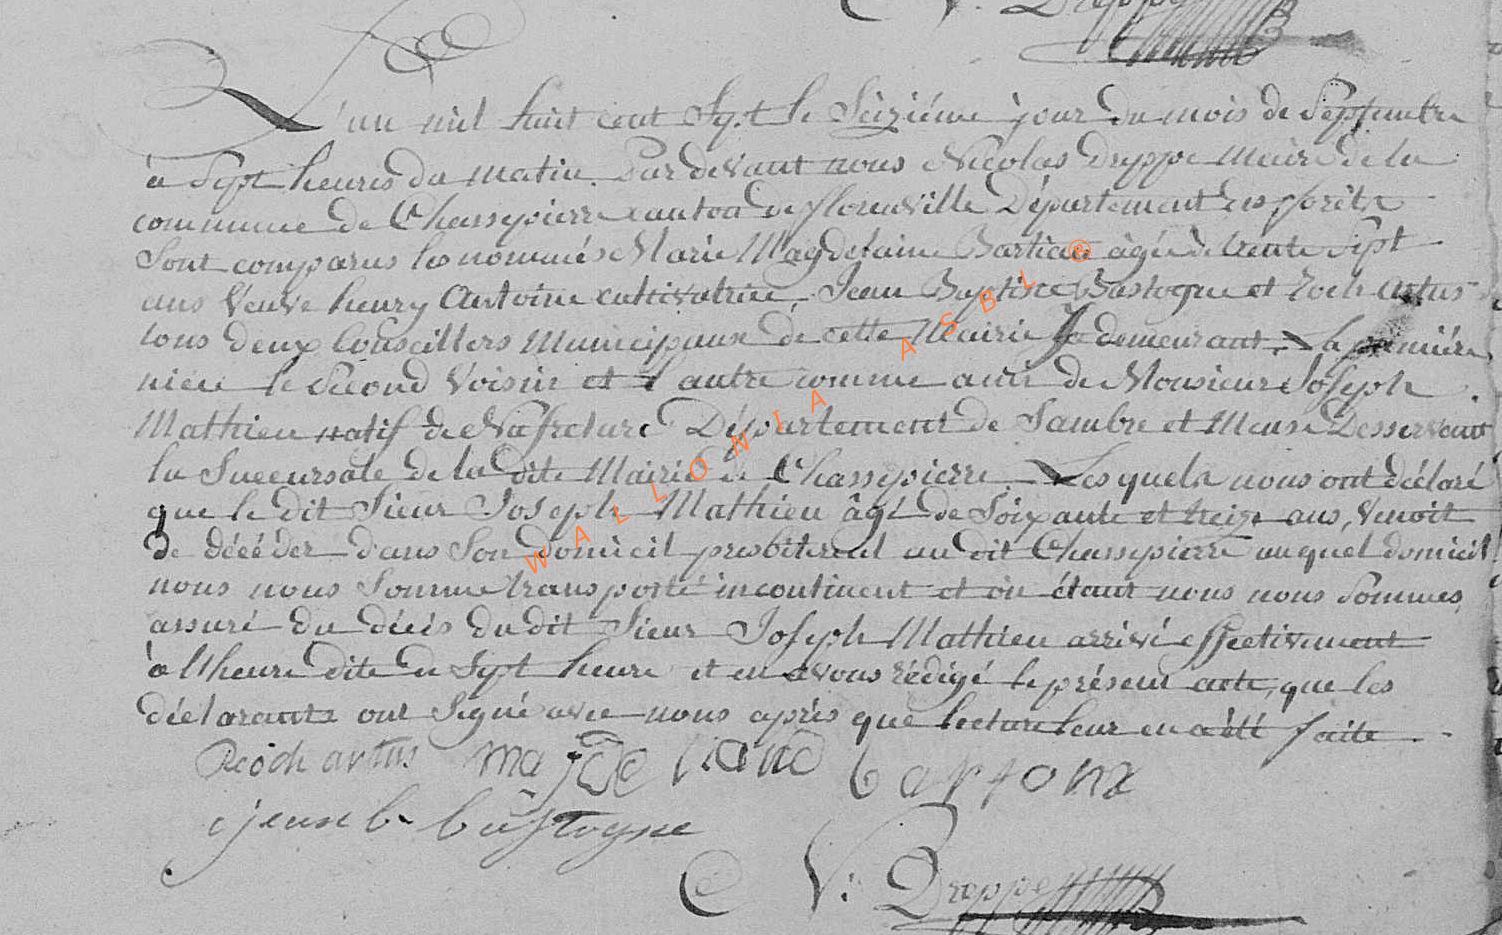 V. Dreppe
L'an mil huit cent Sept le Seiziéme jour du mois de Septembre
à Sept heures du matin. Pardevant nous Nicolas Dreppe Maire de la
commune de Chassepierre canton de fflorenville Département des fforêts
Sont comparus les nommés Marie Magdelaine age de trente Sept
ans Veuve henry Antoine cultivatrice, Jean Baptiste Bastogne et Roch Artus
tous deux Conseillers Municipaux de cette Mairie y demeurant. La premiére
niéce le Second Voisin et l'autre comme ami de Monsieur Joseph
Mathieu natif de Nafreture Département de Sambre et Meuse Desservant
la Succursale de la dite Mairie de Chassepierre. Lesquels nous ont déclaré
que le dit Sieur Joseph Mathieu âgé de Soixante et treize ans, Venoit
de décéder dans Son domicil presbiteral au dit Chassepierre auquel domicil
nous nous Somme transporté incontinent et où étant nous nous Sommes
assuré du décés du dit Sieur Joseph Mathieu arrivé effectivement
à l'heure dite de Sept heure et en avons rédigé le présent acte, que les
déclarants ont Signé avec nous après que lecture leur en a été faite.
Roch artus
jean b. bastogne
V: Dreppe
WALLONIA ASBL ©